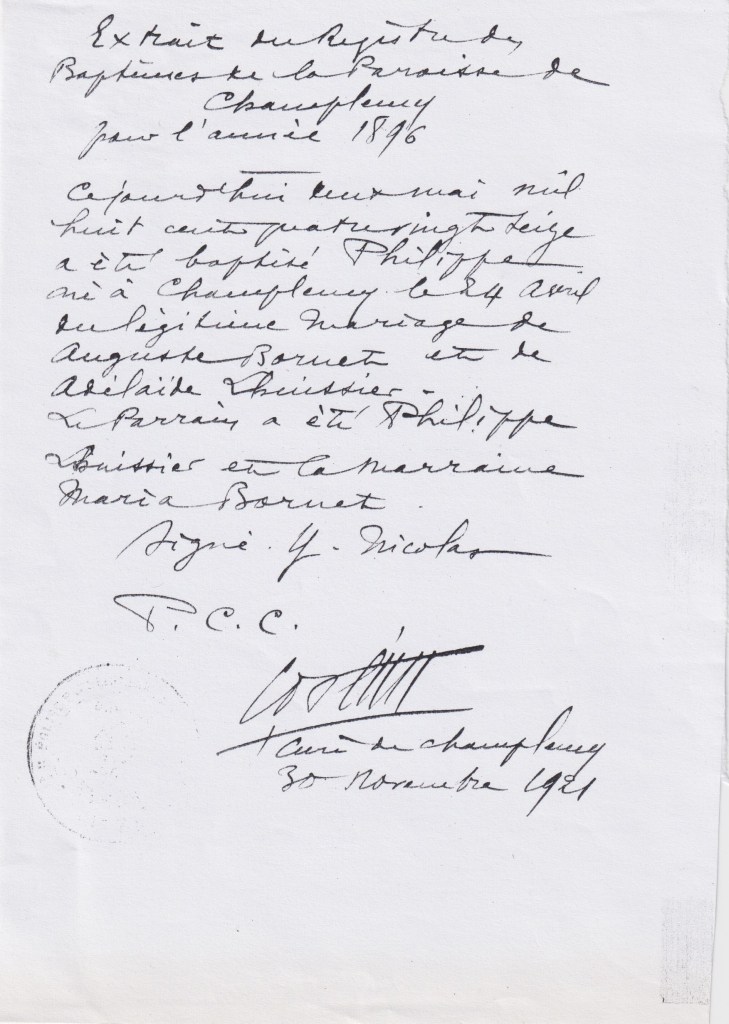 Extrait du Registre des
Baptêmes de la Paroisse de
Champlemy
pour l'année 1896
Cejourd'hui deux mai mil
huit cent quatrevingt seize
a été baptisé Philippe
né à Champlemy le 24 Avril
du légitime Mariage de
Auguste Bornet et de
Adélaïde Lhuissier -
Le Parrain a été Philippe
Lhuissier et la Marraine
Maria Bornet.
Signé. Y. Nicolas
P. C. C.
Curé de Champlemy
30 Novembre 1921